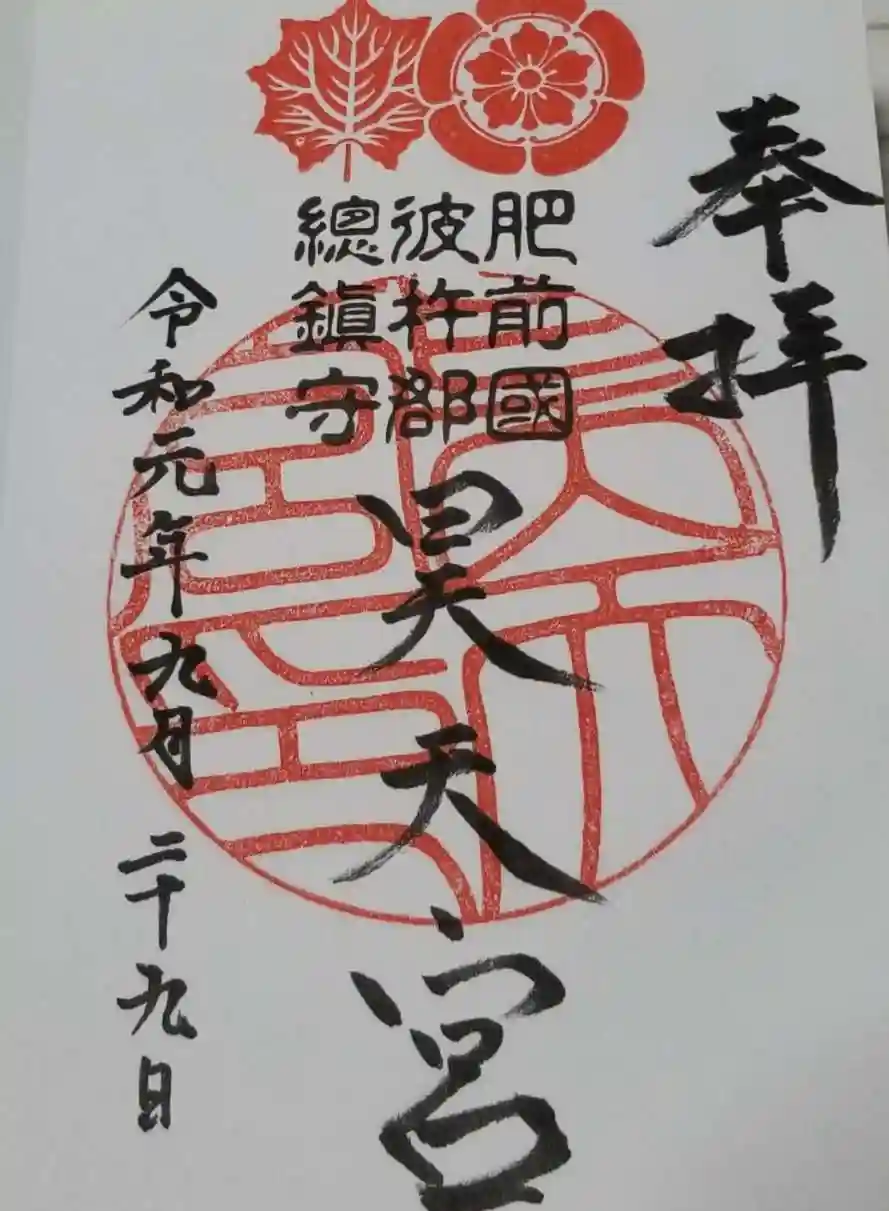 奉拝
肥前國
彼杵郡
總鎮守
昊天宮
令和元年九月二十九日